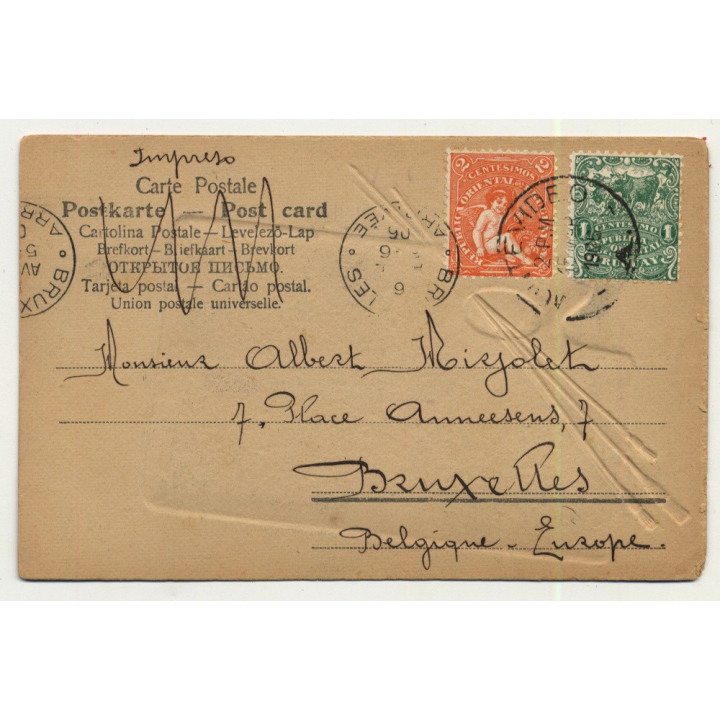 Impreso
Carte Postale
Postkarte — Post card
Cartolina Postale — Levelező-Lap
Brefkort — Briefkaart — Brevkort
ОТКРЫТОЕ ПИСЬМО.
Tarjeta postal — Cartão postal.
Union postale universelle.
BRUX
ARR
BR LES
ARRIVEE
2 2
CENTESIMOS
ORIENTAL
MONTEVIDEO
1 1
CENTESIMO
REPUBLICA
URUGUAY
Monsieur Albert
7, Place Anneesens, 7
Bruxelles
Belgique - Europe.